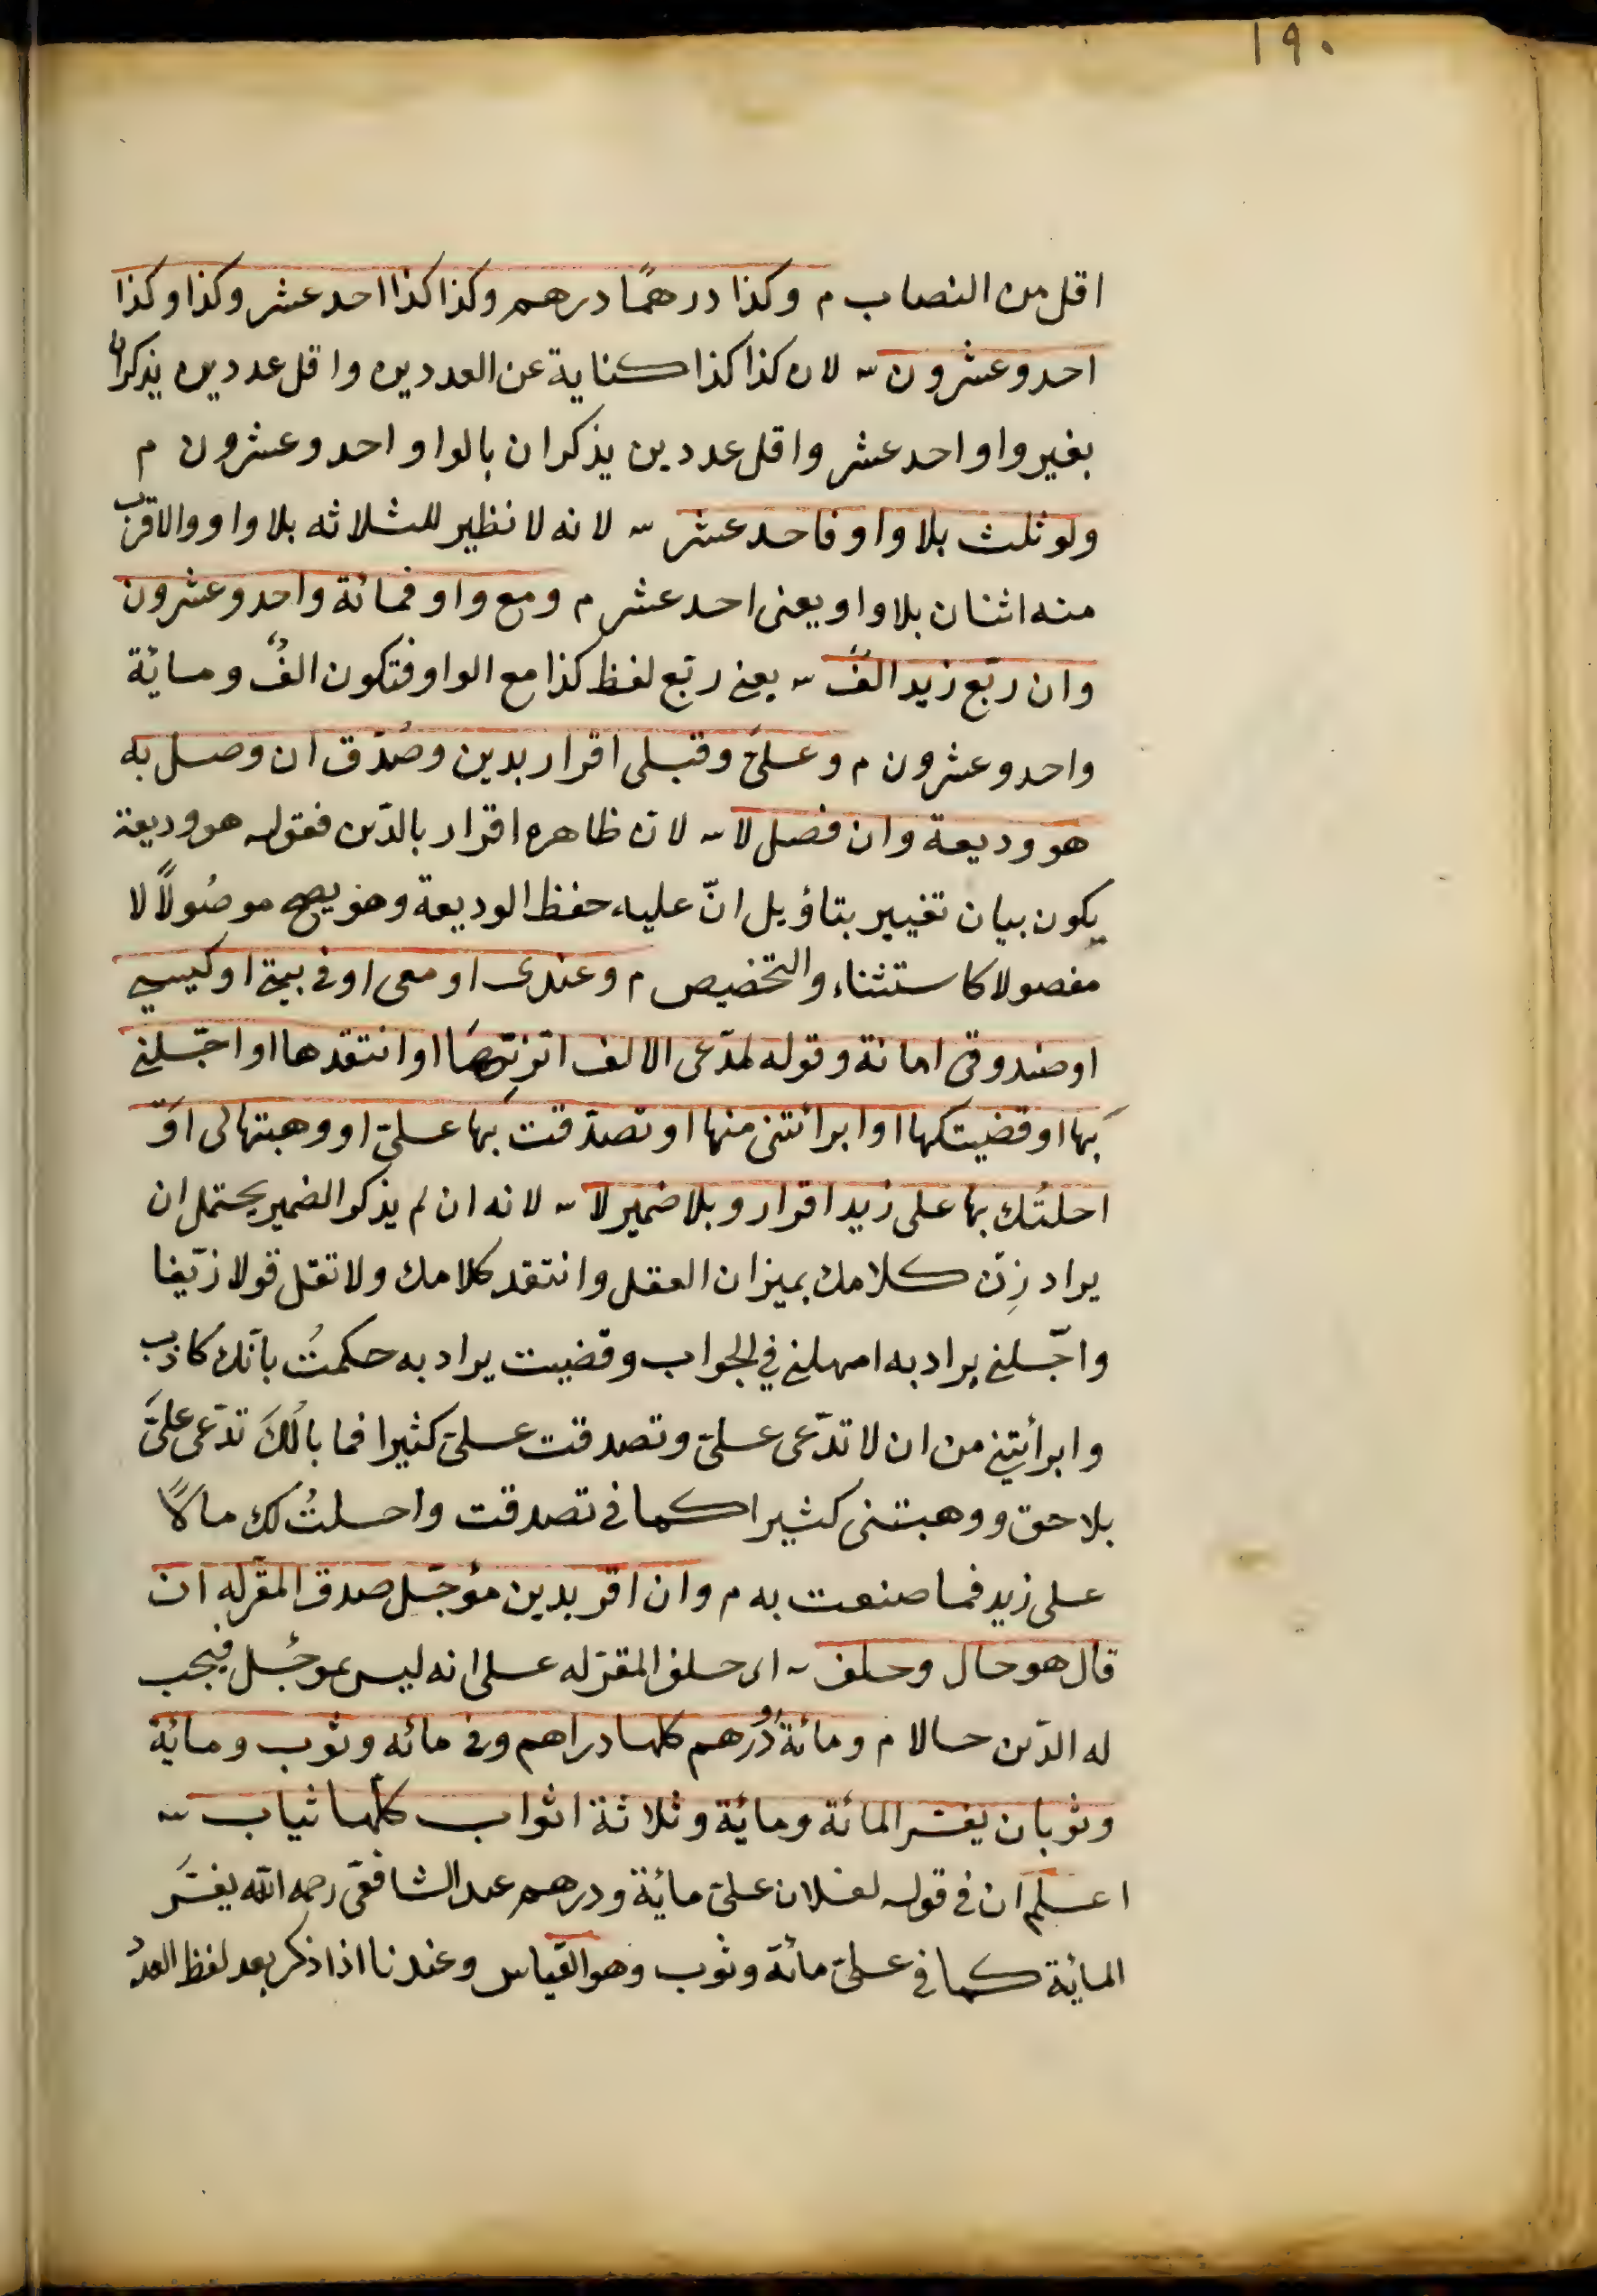 ١٩٠
اقل من النصاب م وكذا درهمًا درهم وكذا كذا احد عشر وكذا وكذا
احد وعشرون ـ لان كذا كذا كناية عن العددين واقل عددين يذكران
بغير واو احد عشر واقل عددين يذكران بالواو احد وعشرون م
ولو ثلث بلا واو فاحد عشر ـ لانه لا نظير للثلاثه بلا واو والاقرب
منه اثنان بلا واو يعنى احد عشر م ومع واو فمائة واحد وعشرون
وان ربّع زيد الفٌ ـ يعني ربّع لفظ كذا مع الواو فتكون الفٌ ومائة
واحد وعشرون م وعليّ وقبلى اقرار بدين وصُدّق ان وصل به
هو وديعة وان فصل لا ـ لان ظاهره اقرار بالدّين فقوله هو وديعة
يكون بيان تغيير بتاؤيل انّ عليه حفظ الوديعة وهو يصح موصُولًا لا
مفصولا كاستثناء والتخصيص م وعندى او معى او في بيتي او كيسي
او صندوقى امانة وقوله لمدّعى الالف اتّزِنَها او انتقدها او اجّلني
بَها او قضيتكها او ابرأتنى منها او تصدّقت بَها عليّ او وهبتها لى اوَ
احلتُك بها على زيد اقرار وبلا ضمير لا ـ لانه ان لم يذكر الضمير يحتمل ان
يراد زِن كلامك بميزان العقل وانتقد كلامك ولا تقل قولا زيّفا
واجّلني يراد به امهلني في الجواب وقضيت يراد به حكمتُ بانّك كاذب
وابرأتني من ان لا تدّعى عليّ وتصدقت عليّ كثيرا فما بالُكَ تدّعى عليَّ
بلا حق ووهبتنى كثيرا كما في تصدقت واحلتُ لك مالًا
على زيد فما صنعت به م وان اقر بدين مؤجّل صدق المقرّ له ان
قال هو حال وحلف ـ اى حلف المقرّ له على انه ليس بموجّل فيجب
له الدّين حالا م ومائة ودرهم كلها دراهم وفي مائه وثوب ومائة
وثوبان يفسّر المائة ومائة وثلاثة اثواب كلّها ثياب ـ
اعلم ان في قوله لفلان عليّ مائة ودرهم عند الشافعىّ رحمه الله يفسَّر
المائة كما في عليّ مائة وثوب وهو القياس وعندنا اذا ذكر بعد لفظ العدد